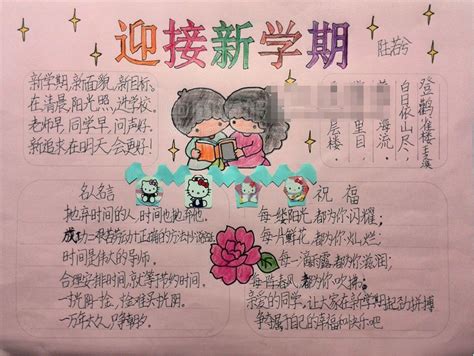 迎接新学期
陆若兮
新学期,新面貌,新目标。
在清晨,阳光照,进学校。
老师早,同学早,问声好。
新追求在明天,会更好!
登鹳雀楼 王之涣
白日依山尽,
海流
里目
层楼。
名人名言
抛弃时间的人,时间也抛弃他。
成功=艰苦劳动+正确的方法+少说空话
时间是伟大的导师。
合理安排时间,就等于节约时间。
一寸光阴一寸金,寸金难买寸光阴。
一万年太久,只争朝夕。
祝福
每一缕阳光,都为你闪耀;
每一片鲜花,都为你灿烂;
每一滴雨露,都为你滋润;
每一阵春风,都为你
亲爱的同学,让大家在新学期起劲拼搏
争取属于自己的幸福和快乐吧